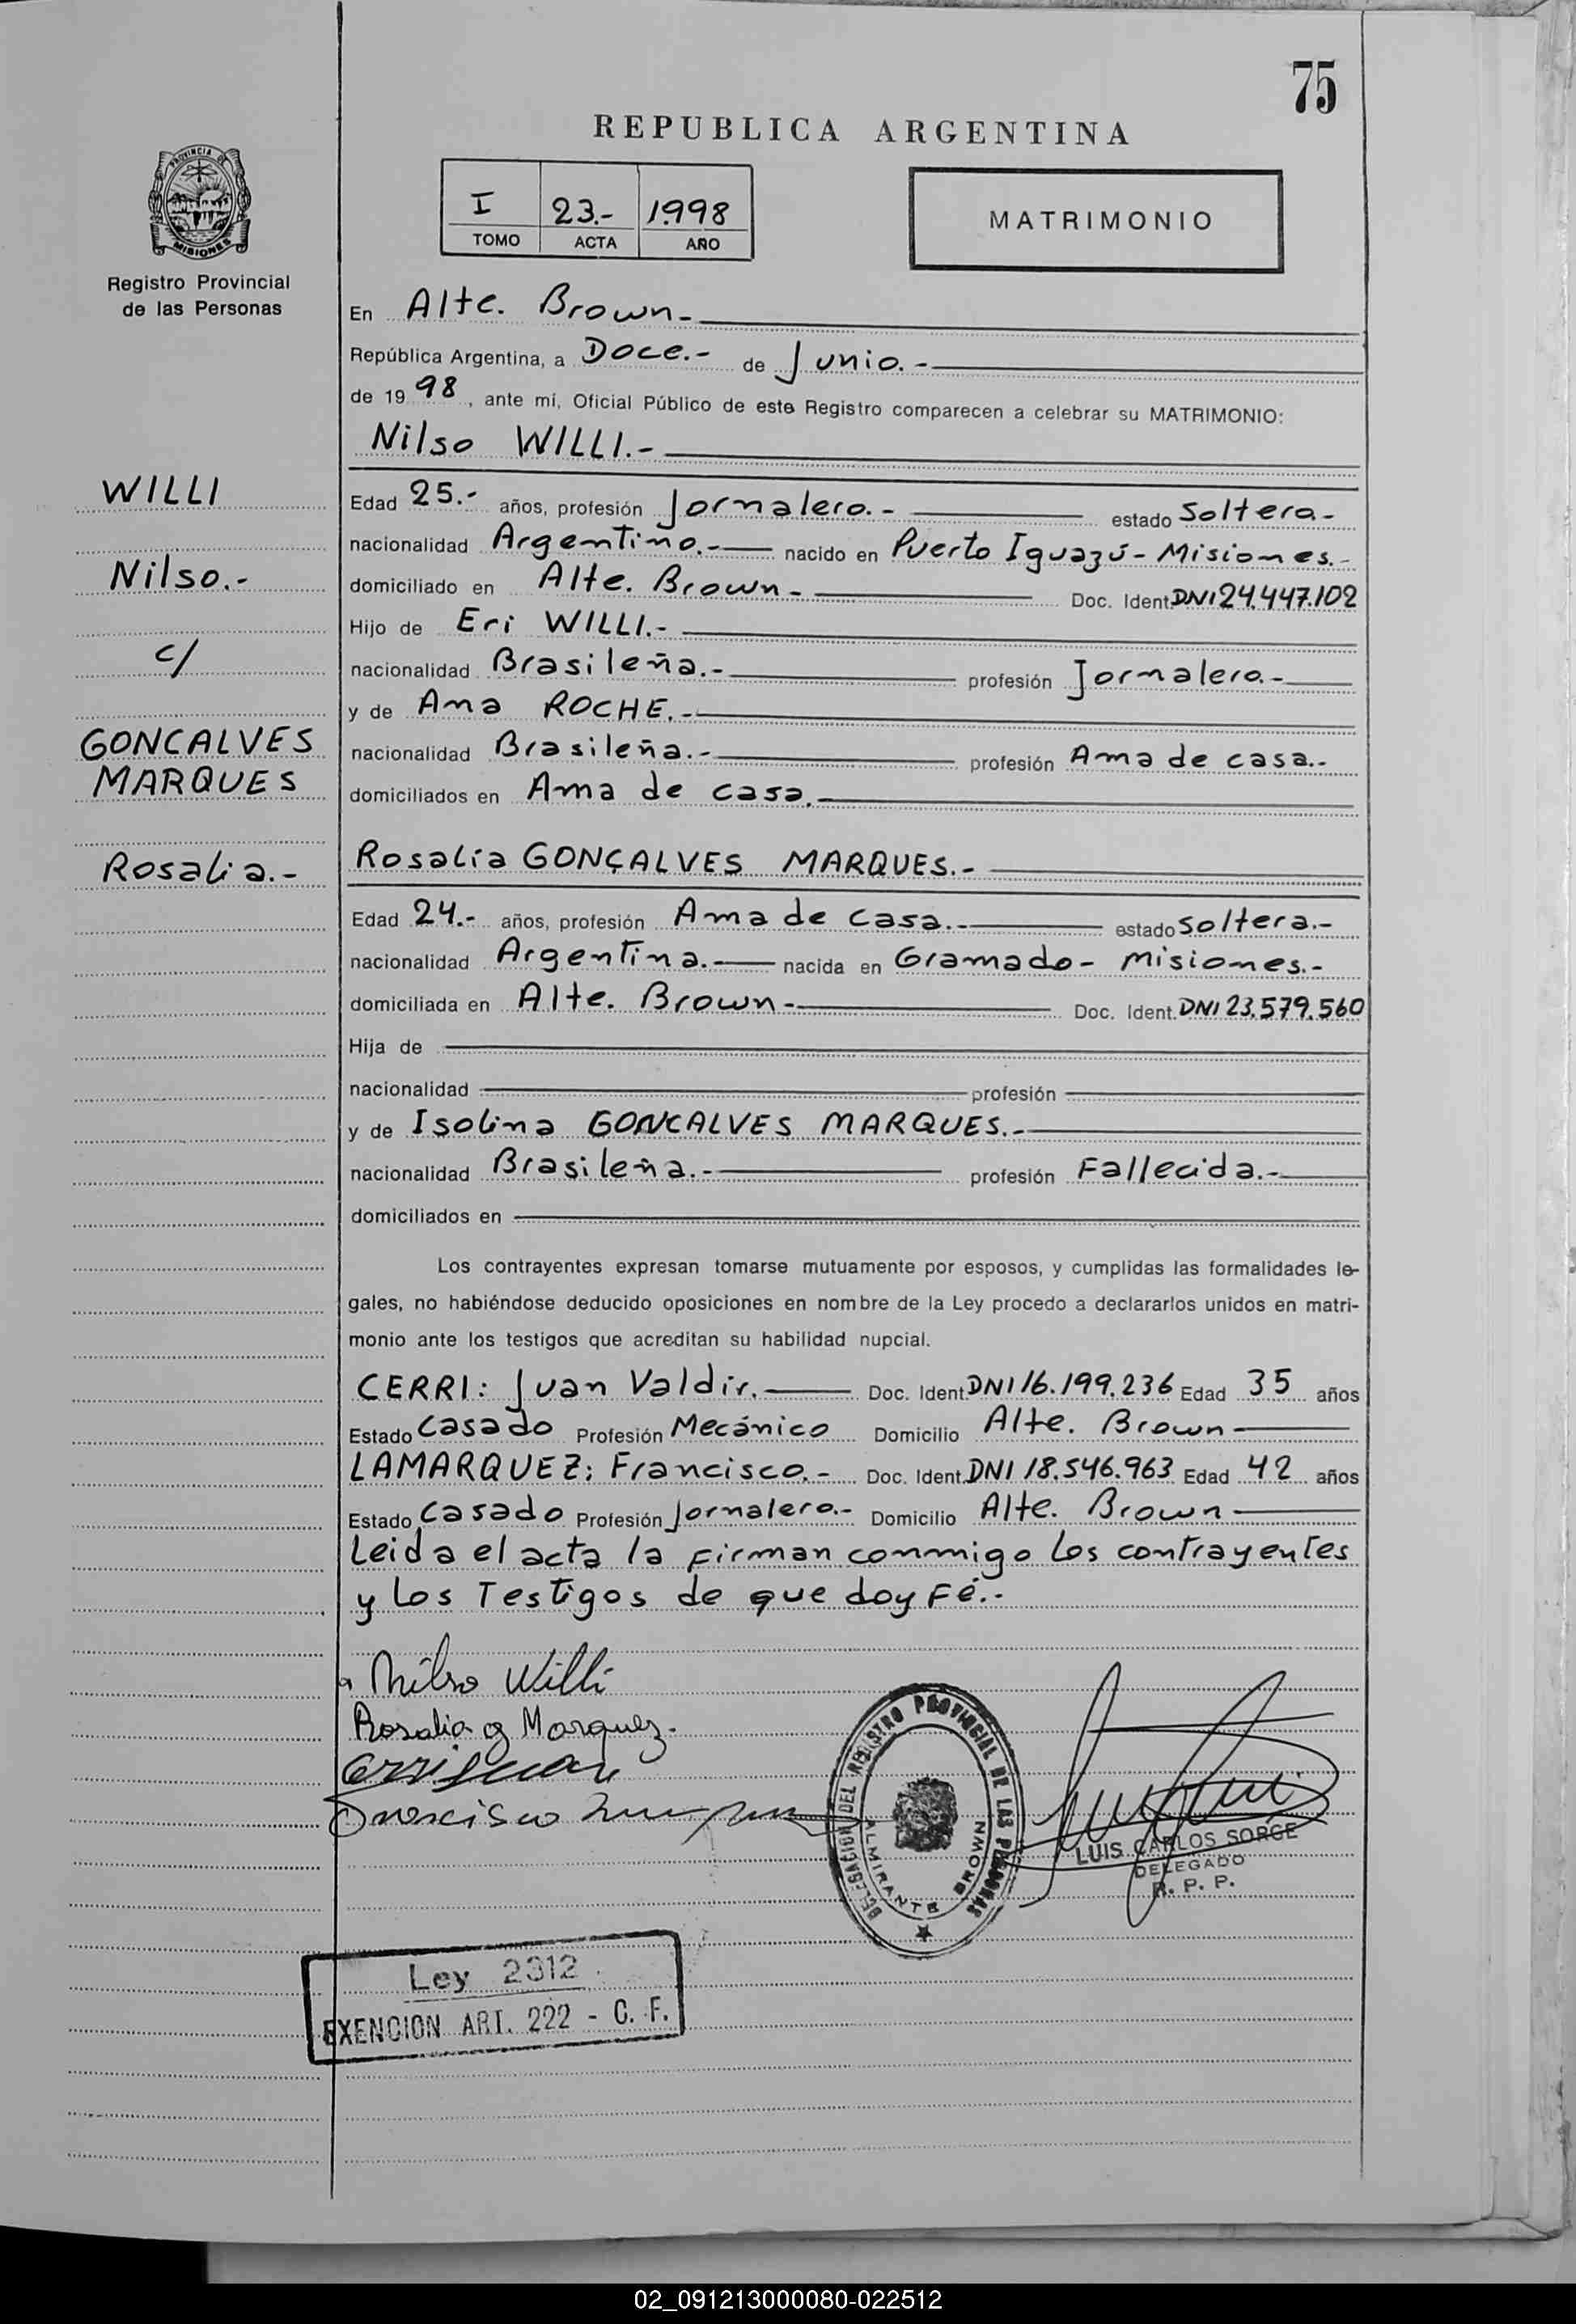 75
REPUBLICA ARGENTINA
I 23.- 1998
TOMO ACTA AÑO
MATRIMONIO
PROVINCIA DE
MISIONES
Registro Provincial
de las Personas
En Alte. Brown.-
República Argentina, a Doce.- de Junio.-
de 19 98, ante mí, Oficial Público de este Registro comparecen a celebrar su MATRIMONIO:
Nilso WILLI.-
WILLI
Nilso.-
c/
GONCALVES
MARQUES
Rosalia.-
Edad 25.- años, profesión Jornalero.- estado Soltero.-
nacionalidad Argentino.- nacido en Puerto Iguazú - Misiones.-
domiciliado en Alte. Brown.- Doc. Ident. DNI 24.447.102
Hijo de Eri WILLI.-
nacionalidad Brasileña.- profesión Jornalero.-
y de Ana ROCHE.-
nacionalidad Brasileña.- profesión Ama de casa.-
domiciliados en Ama de casa.-
Rosalía GONÇALVES MARQUES.-
Edad 24.- años, profesión Ama de casa.- estado soltera.-
nacionalidad Argentina.- nacida en Gramado - Misiones.-
domiciliada en Alte. Brown.- Doc. Ident. DNI 23.579.560
Hija de
nacionalidad profesión
y de Isolina GONCALVES MARQUES.-
nacionalidad Brasileña.- profesión Fallecida.-
domiciliados en
Los contrayentes expresan tomarse mutuamente por esposos, y cumplidas las formalidades le-
gales, no habiéndose deducido oposiciones en nombre de la Ley procedo a declararlos unidos en matri-
monio ante los testigos que acreditan su habilidad nupcial.
CERRI: Juan Valdir. Doc. Ident. DNI 16.199.236 Edad 35 años
Estado Casado Profesión Mecánico Domicilio Alte. Brown
LAMARQUEZ: Francisco.- Doc. Ident. DNI 18.546.963 Edad 42 años
Estado Casado Profesión Jornalero.- Domicilio Alte. Brown
Leida el acta la firman conmigo los contrayentes
y los Testigos de que doy Fé.-
Nilso Willi
Rosalia g Marquez.
Cerri Juan
Francisco
DELEGACION DEL REGISTRO PROVINCIAL DE LAS PERSONAS
ALMIRANTE BROWN
LUIS CARLOS SORGE
DELEGADO
R. P. P.
Ley 2312
EXENCION ART. 222 - C. F.
02_091213000080-022512